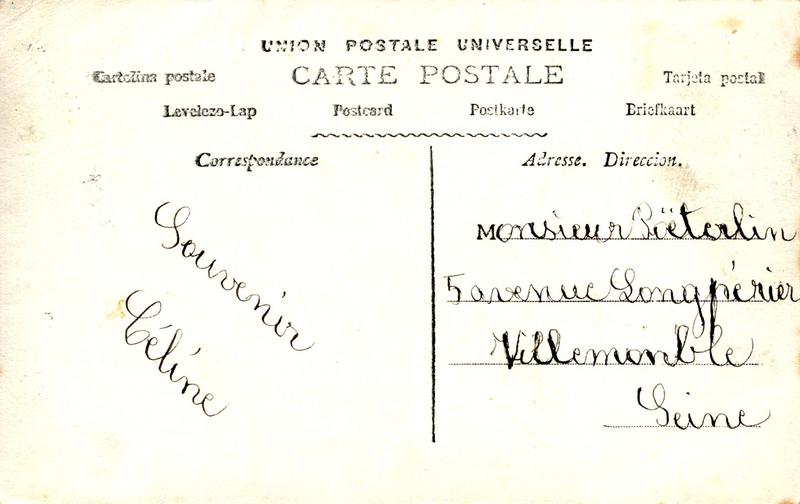 UNION POSTALE UNIVERSELLE
CARTE POSTALE
Cartolina postale
Tarjeta postal
Levelezo-Lap Postcard Postkarte Briefkaart
Correspondance
Souvenir
Céline
Adresse. Direccion.
Monsieur
5 avenue Longpérier
Villemonble
Seine